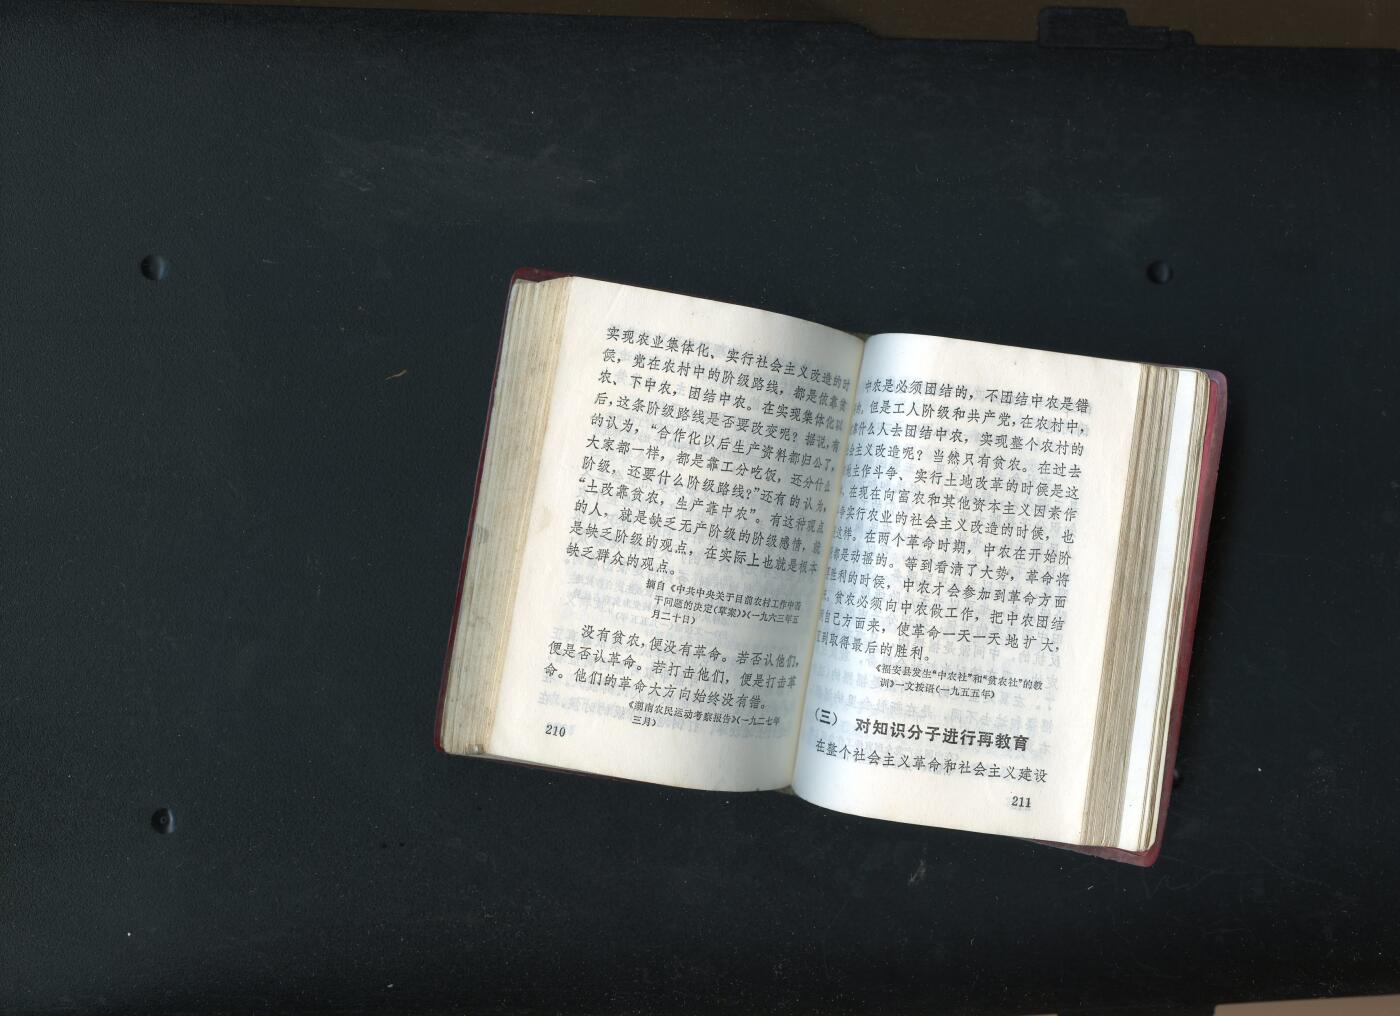 实现农业集体化、实行社会主义改造的时
候，党在农村中的阶级路线，都是依靠贫
农、下中农，团结中农。在实现集体化以
后，这条阶级路线是否要改变呢？据说，有
的认为，“合作化以后生产资料都归公了，
大家都一样，都是靠工分吃饭，还分什么
阶级，还要什么阶级路线？”还有的认为，
“土改靠贫农，生产靠中农”。有这种观点
的人，就是缺乏无产阶级的阶级感情，就
是缺乏阶级的观点，在实际上也就是根本
缺乏群众的观点。
摘自《中共中央关于目前农村工作中若
干问题的决定（草案）》（一九六三年五
月二十日）
没有贫农，便没有革命。若否认他们，
便是否认革命。若打击他们，便是打击革
命。他们的革命大方向始终没有错。
《湖南农民运动考察报告》（一九二七年
三月）
210
中农是必须团结的，不团结中农是错
，但是工人阶级和共产党，在农村中，
什么人去团结中农，实现整个农村的
会主义改造呢？当然只有贫农。在过去
地主作斗争、实行土地改革的时候是这
，在现在向富农和其他资本主义因素作
争实行农业的社会主义改造的时候，也
这样。在两个革命时期，中农在开始阶
都是动摇的。等到看清了大势，革命将
胜利的时候，中农才会参加到革命方面
。贫农必须向中农做工作，把中农团结
自己方面来，使革命一天一天地扩大，
到取得最后的胜利。
《福安县发生“中农社”和“贫农社”的教
训》一文按语（一九五五年）
（三） 对知识分子进行再教育
在整个社会主义革命和社会主义建设
211